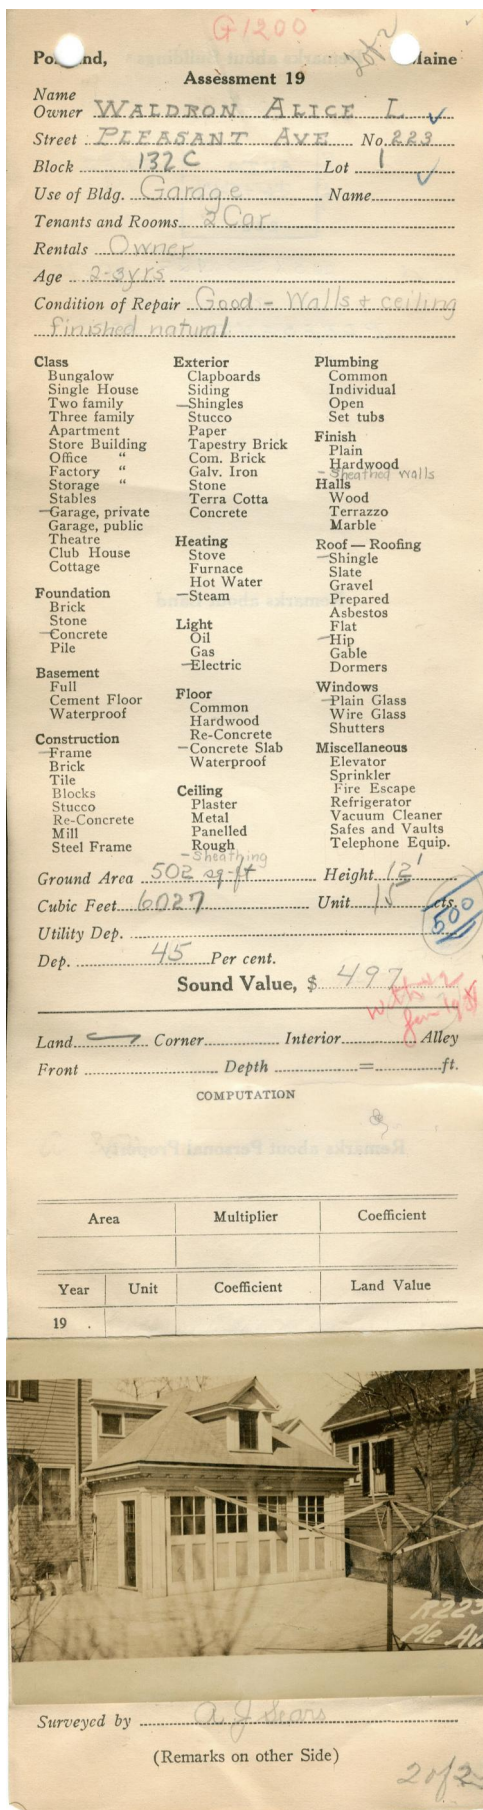 G1200
2 of 2
Portland, Maine
Assessment 19
Name
Owner WALDRON ALICE L
Street PLEASANT AVE No. 223
Block 132C Lot 1
Use of Bldg. Garage Name
Tenants and Rooms 2 Car
Rentals Owner
Age 2-3yrs
Condition of Repair Good - Walls + ceiling
finished natural
Class
Bungalow
Single House
Two family
Three family
Apartment
Store Building
Office "
Factory "
Storage "
Stables
—Garage, private
Garage, public
Theatre
Club House
Cottage
Foundation
Brick
Stone
—Concrete
Pile
Basement
Full
Cement Floor
Waterproof
Construction
—Frame
Brick
Tile
Blocks
Stucco
Re-Concrete
Mill
Steel Frame
Exterior
Clapboards
Siding
—Shingles
Stucco
Paper
Tapestry Brick
Com. Brick
Galv. Iron
Stone
Terra Cotta
Concrete
Heating
Stove
Furnace
Hot Water
—Steam
Light
Oil
Gas
—Electric
Floor
Common
Hardwood
Re-Concrete
—Concrete Slab
Waterproof
Ceiling
Plaster
Metal
Panelled
Rough
- Sheathing
Plumbing
Common
Individual
Open
Set tubs
Finish
Plain
Hardwood
- Sheathed walls
Halls
Wood
Terrazzo
Marble
Roof — Roofing
—Shingle
Slate
Gravel
Prepared
Asbestos
Flat
—Hip
Gable
Dormers
Windows
—Plain Glass
Wire Glass
Shutters
Miscellaneous
Elevator
Sprinkler
Fire Escape
Refrigerator
Vacuum Cleaner
Safes and Vaults
Telephone Equip.
Ground Area 502 sq-ft Height 12'
Cubic Feet 6027 Unit 15 cts.
500
Utility Dep.
Dep. 45 Per cent.
Sound Value, $ 497
with #2
Land Corner Interior Alley
Front Depth = ft.
COMPUTATION
Area Multiplier Coefficient
Year Unit Coefficient Land Value
19 .
R223
Ple Av.
Surveyed by A J Sears
(Remarks on other Side)
2 of 2